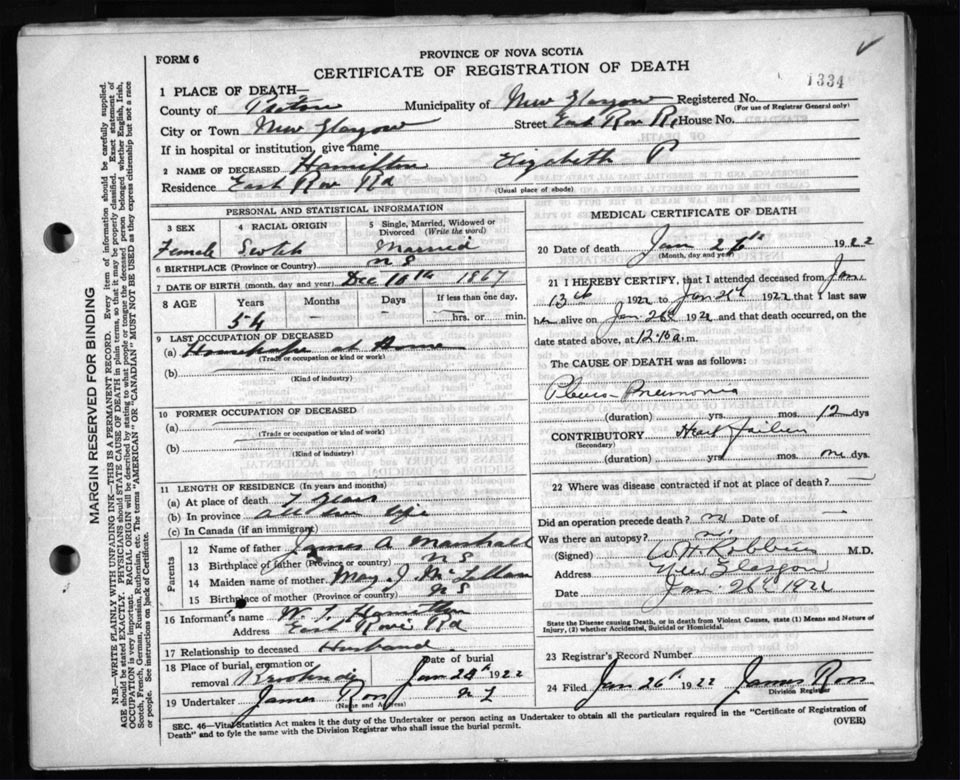 FORM 6
PROVINCE OF NOVA SCOTIA
CERTIFICATE OF REGISTRATION OF DEATH
1334
1 PLACE OF DEATH—
County of Pictou Municipality of New Glasgow Registered No.
(For use of Registrar General only)
City or Town New Glasgow Street East River R. House No.
If in hospital or institution, give name
2 NAME OF DECEASED Hamilton Elizabeth P
Residence East River Rd (Usual place of abode)
PERSONAL AND STATISTICAL INFORMATION
3 SEX 4 RACIAL ORIGIN 5 Single, Married, Widowed or Divorced (Write the word)
Female Scotch Married
6 BIRTHPLACE (Province or Country) N S
7 DATE OF BIRTH (month, day and year) Dec 10th 1867
8 AGE Years Months Days If less than one day,
54 – – hrs. or min.
9 LAST OCCUPATION OF DECEASED
(a) at Home
(Trade or occupation or kind or work)
(b)
(Kind of industry)
10 FORMER OCCUPATION OF DECEASED
(a)
(Trade or occupation or kind of work)
(b)
(Kind of industry)
11 LENGTH OF RESIDENCE (In years and months)
(a) At place of death 7 years
(b) In province all her life
(c) In Canada (if an immigrant)
Parents
12 Name of father James A Marshall
13 Birthplace of father (Province or country) N S
14 Maiden name of mother May J McLellan
15 Birthplace of mother (Province or country) N S
16 Informant's name Hamilton
Address East River Rd
17 Relationship to deceased Husband
18 Place of burial, cremation or removal Date of burial
Jan 28th 1922
19 Undertaker James Ross
(Name and Address)
MEDICAL CERTIFICATE OF DEATH
20 Date of death Jan 26th 1922
(Month, day and year)
21 I HEREBY CERTIFY, that I attended deceased from Jan.
13th 1922 to Jan 26th 1922 that I last saw
her alive on Jan 26th 1922 and that death occurred, on
date stated above, at 12.15 a.m.
The CAUSE OF DEATH was as follows:
Pleuro-Pneumonia
(duration) yrs. mos. 12 dys
CONTRIBUTORY Heart failure
(Secondary)
(duration) yrs. mos. one dys.
22 Where was disease contracted if not at place of death? —
Did an operation precede death? no Date of —
Was there an autopsy? no
(Signed) W H Robbins M.D.
Address New Glasgow
Date Jan 26th 1922
State the Disease causing Death, or in death from Violent Causes, state (1) Means and Nature of Injury, (2) whether Accidental, Suicidal or Homicidal.
23 Registrar's Record Number
24 Filed Jan 26th 1922 James Ross
Division Registrar
SEC. 46—Vital Statistics Act makes it the duty of the Undertaker or person acting as Undertaker to obtain all the particulars required in the "Certificate of Registration of
Death" and to fyle the same with the Division Registrar who shall issue the burial permit.
(OVER)
MARGIN RESERVED FOR BINDING
N.B.—WRITE PLAINLY WITH UNFADING INK—THIS IS A PERMANENT RECORD. Every item of information should be carefully supplied.
AGE should be stated EXACTLY. PHYSICIANS should STATE CAUSE OF DEATH in plain terms, so that it may be properly classified. Exact statement of
OCCUPATION is very important. RACIAL ORIGIN will be described by stating to what people or tongue the deceased person belonged whether English, Irish,
Scotch, French, German, Russian, Ruthenian, etc. The terms "AMERICAN" OR "CANADIAN" MUST NOT BE USED as they express citizenship but not a race
or people. See instructions on back of Certificate.